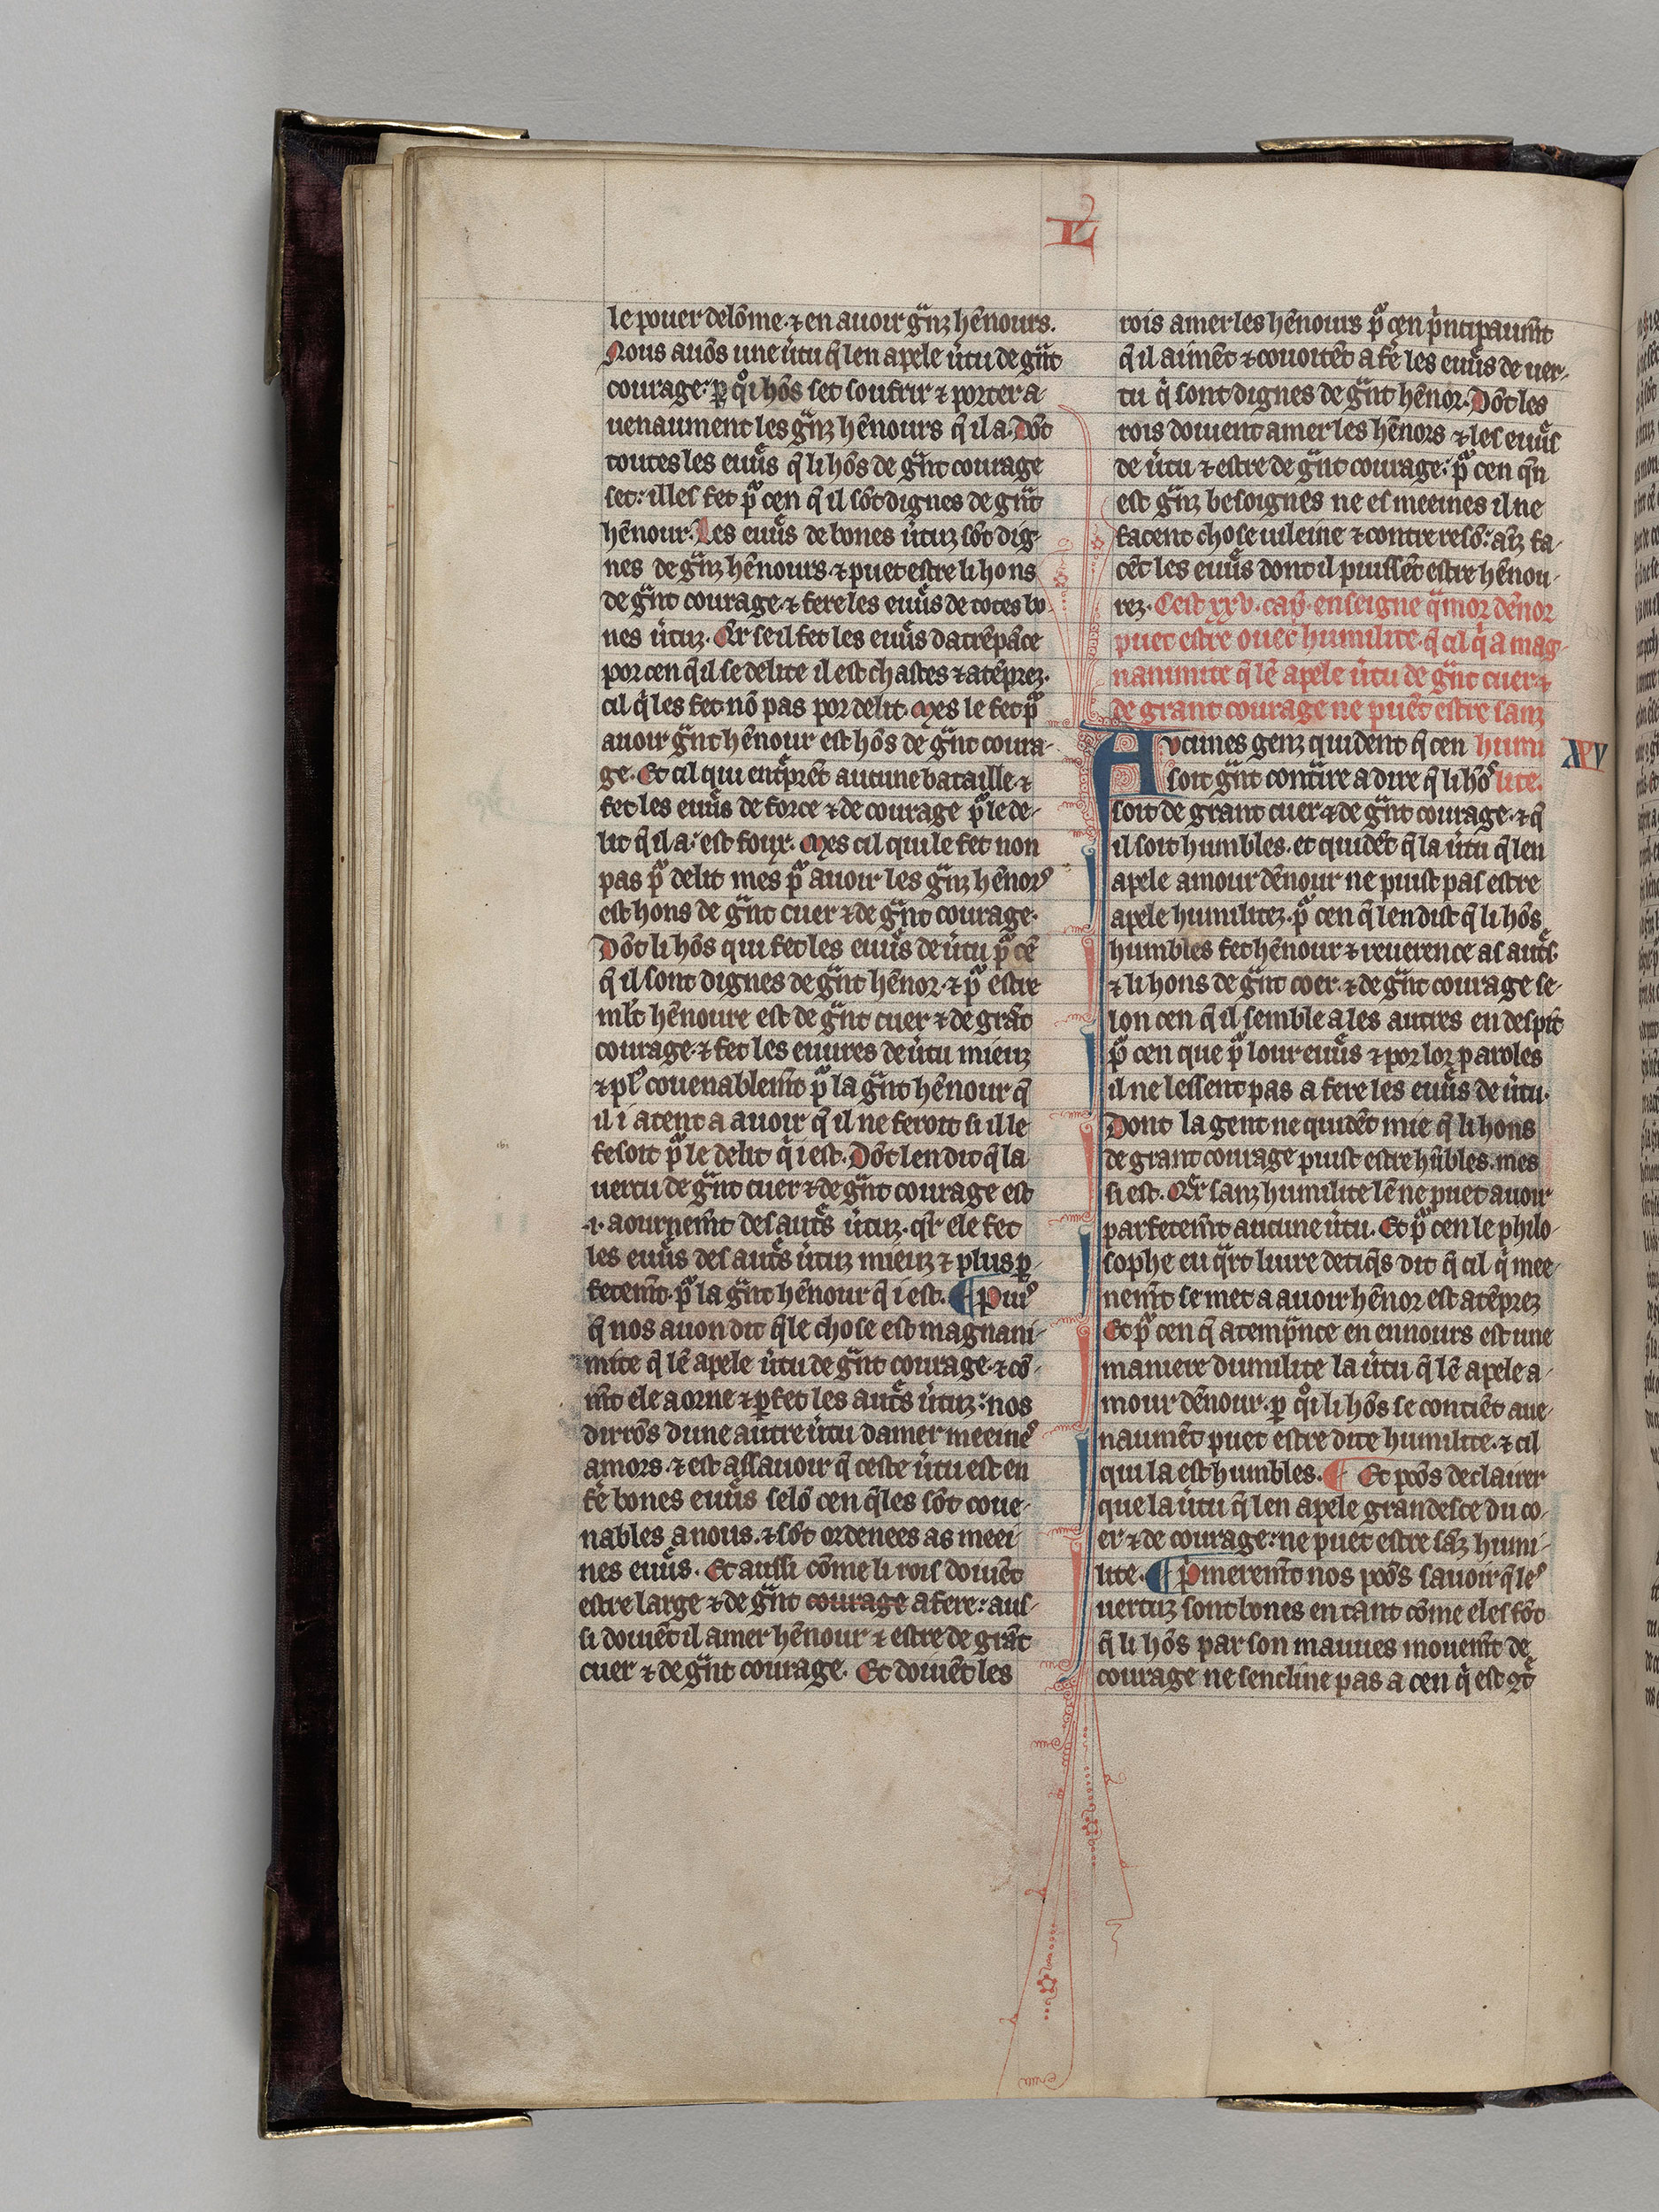 L
le pouer delōme. ⁊ en auoir gᵃnz hēnours.
Nous auōs une u̾tu q̄ len apele u̾tu de gᵃnt
courage: ꝑ qͦi hōs set soufrir ⁊ porter a-
uenaument les gᵃnz hēnours q̄ il a. Dōt
toutes les euuͬs q̄ li hōs de gᵃnt courage
set: illes fet pͦ cen q̄ il sōt dignes de gᵃnt
hēnour. Les euuͬs de bones u̾tuz sōt dig-
nes de gᵃnz hēnours. ⁊ puet estre li hons
de gᵃnt courage. ⁊ fere les euuͬs de totes bo-
nes u̾tuz. Qᵃr se il fet les euuͬs datrēpāce
por cen q̄ il se delite il est chastes ⁊ atēprez.
cil q̄ les fet nō pas por delit. Mes le fet pͦ
auoir gᵃnt hēnour est hōs de gᵃnt coura-
ge. Et cil qui entͤprēt aucune bataille ⁊
fet les euuͬs de force ⁊ de courage pͦ le de-
lit q̄ il a: est forz. Mes cil qui le fet non
pas pͦ delit mes pͦ auoir les gᵃnz hēnorꝰ
est hons de gᵃnt cuer ⁊ de gᵃnt courage.
Dōt li hōs qui fet les euuͬs de u̾tu pͦ cē
q̄ il sont dignes de gᵃnt hēnor. ⁊ pͦ estre
ml̄t hēnoure est de gᵃnt cuer ⁊ de grāt
courage. ⁊ fet les euures de u̾tu mieuz
⁊ plꝰ couenablem̄t pͦ la gᵃnt hēnour q̄
il i atent a auoir q̄ il ne feroit si il le
fesoit pͦ le delit q̄ i est. Dōt len dit q̄ la
uertu de gᵃnt cuer ⁊ de gᵃnt courage est
.i. aournem̄t des autͤs u̾tuz. qᵃr ele fet
les euuͬs des autͤs u̾tuz mieuz ⁊ plus ꝑ-
fetem̄t. pͦ la gᵃnt hēnour q̄ i est. ¶ Puiꝰ
q̄ nos auon dit q̄le chose est magnani-
mite q̄ lē apele u̾tu de gᵃnt courage. ⁊ cō-
m̄t ele aorne ⁊ ꝑfet les autͤs u̾tuz: nos
dirrōs dune autre u̾tu damer meeineꝰ
amors. ⁊ est assauoir q̄ ceste u̾tu est en
fē bones euuͬs selō cen q̄les sōt coue-
nables a nous. ⁊ sōt ordenees as meei-
nes euuͬs. Et aussi cōme li rois doiuēt
estre large ⁊ de gᵃnt courage a fere: aus-
si doiuēt il amer hēnour ⁊ estre de grāt
cuer ⁊ de gᵃnt courage. Et doiuēt les
rois amer les hēnours pͦ cen pⁱncipaum̄t
q̄ il aimēt ⁊ couoitēt a fē les euuͬs de uer-
tu qⁱ sont dignes de gᵃnt hēnor. Dōt les
rois doiuent amer les hēnors ⁊ les euuͬs
de u̾tu ⁊ estre de gᵃnt courage: pͦ cen q̄n
est gᵃnz besoignes ne es meeines il ne
facent chose uileine ⁊ contre resō: ainz fa-
cēt les euuͬs dont il puissēt estre hēnou-
rez. Cest xxv. cap̄. enseigne q̄ amor dēnor
puet estre ouec humilite. q̄ cil qⁱ a mag-
nanimite q̄ lē apele u̾tu de gᵃnt cuer ⁊
de grant courage ne puēt estre sanz
Aucunes genz quident q̄ cen humi
XXV
soit gᵃnt contᵃire a dire q̄ li hōs lite.
soit de grant cuer ⁊ de gᵃnt courage. ⁊ q̄
il soit humbles. et quidēt q̄ la u̾tu q̄ len
apele amour dēnour ne puist pas estre
apele humilitez. pͦ cen q̄ len dist q̄ li hōs
humbles fet hēnour ⁊ reuerence as autͤs.
⁊ li hons de gᵃnt coer. ⁊ de gᵃnt courage se-
lon cen q̄ il semble a les autres en despit
pͦ cen que pͦ lour euuͬs ⁊ por lor paroles
il ne lessent pas a fere les euuͬs de u̾tu.
Dont la gent ne quidēt mie q̄ li hons
de grant courage puist estre hūbles. mes
si est. Qᵃr sanz humilite lē ne puet auoir
parfetem̄t aucune u̾tu. Et pͦ cen le philo-
sophe eu qᵃrt liure detiq̄s dit q̄ cil qⁱ mee-
nem̄t se met a auoir hēnor est atēprez
Et pͦ cen q̄ atempᵃnce en ennours est une
maniere dumilite la u̾tu q̄ lē apele a-
mour dēnour. ꝑ qͦi li hōs se contiēt aue-
naumēt puet estre dite humilite. ⁊ cil
qui la est humbles. ¶ Et poōs declairer
que la u̾tu q̄ len apele grandesce du co-
er ⁊ de courage: ne puet estre sāz humi-
lite. ¶ Pⁱmerem̄t nos poōs sauoir q̄ leꝰ
uertuz sont bones en tant cōme eles fōt
q̄ li hōs par son mauues mouem̄t de
courage ne sencline pas a cen qⁱ est ꝯtͤ